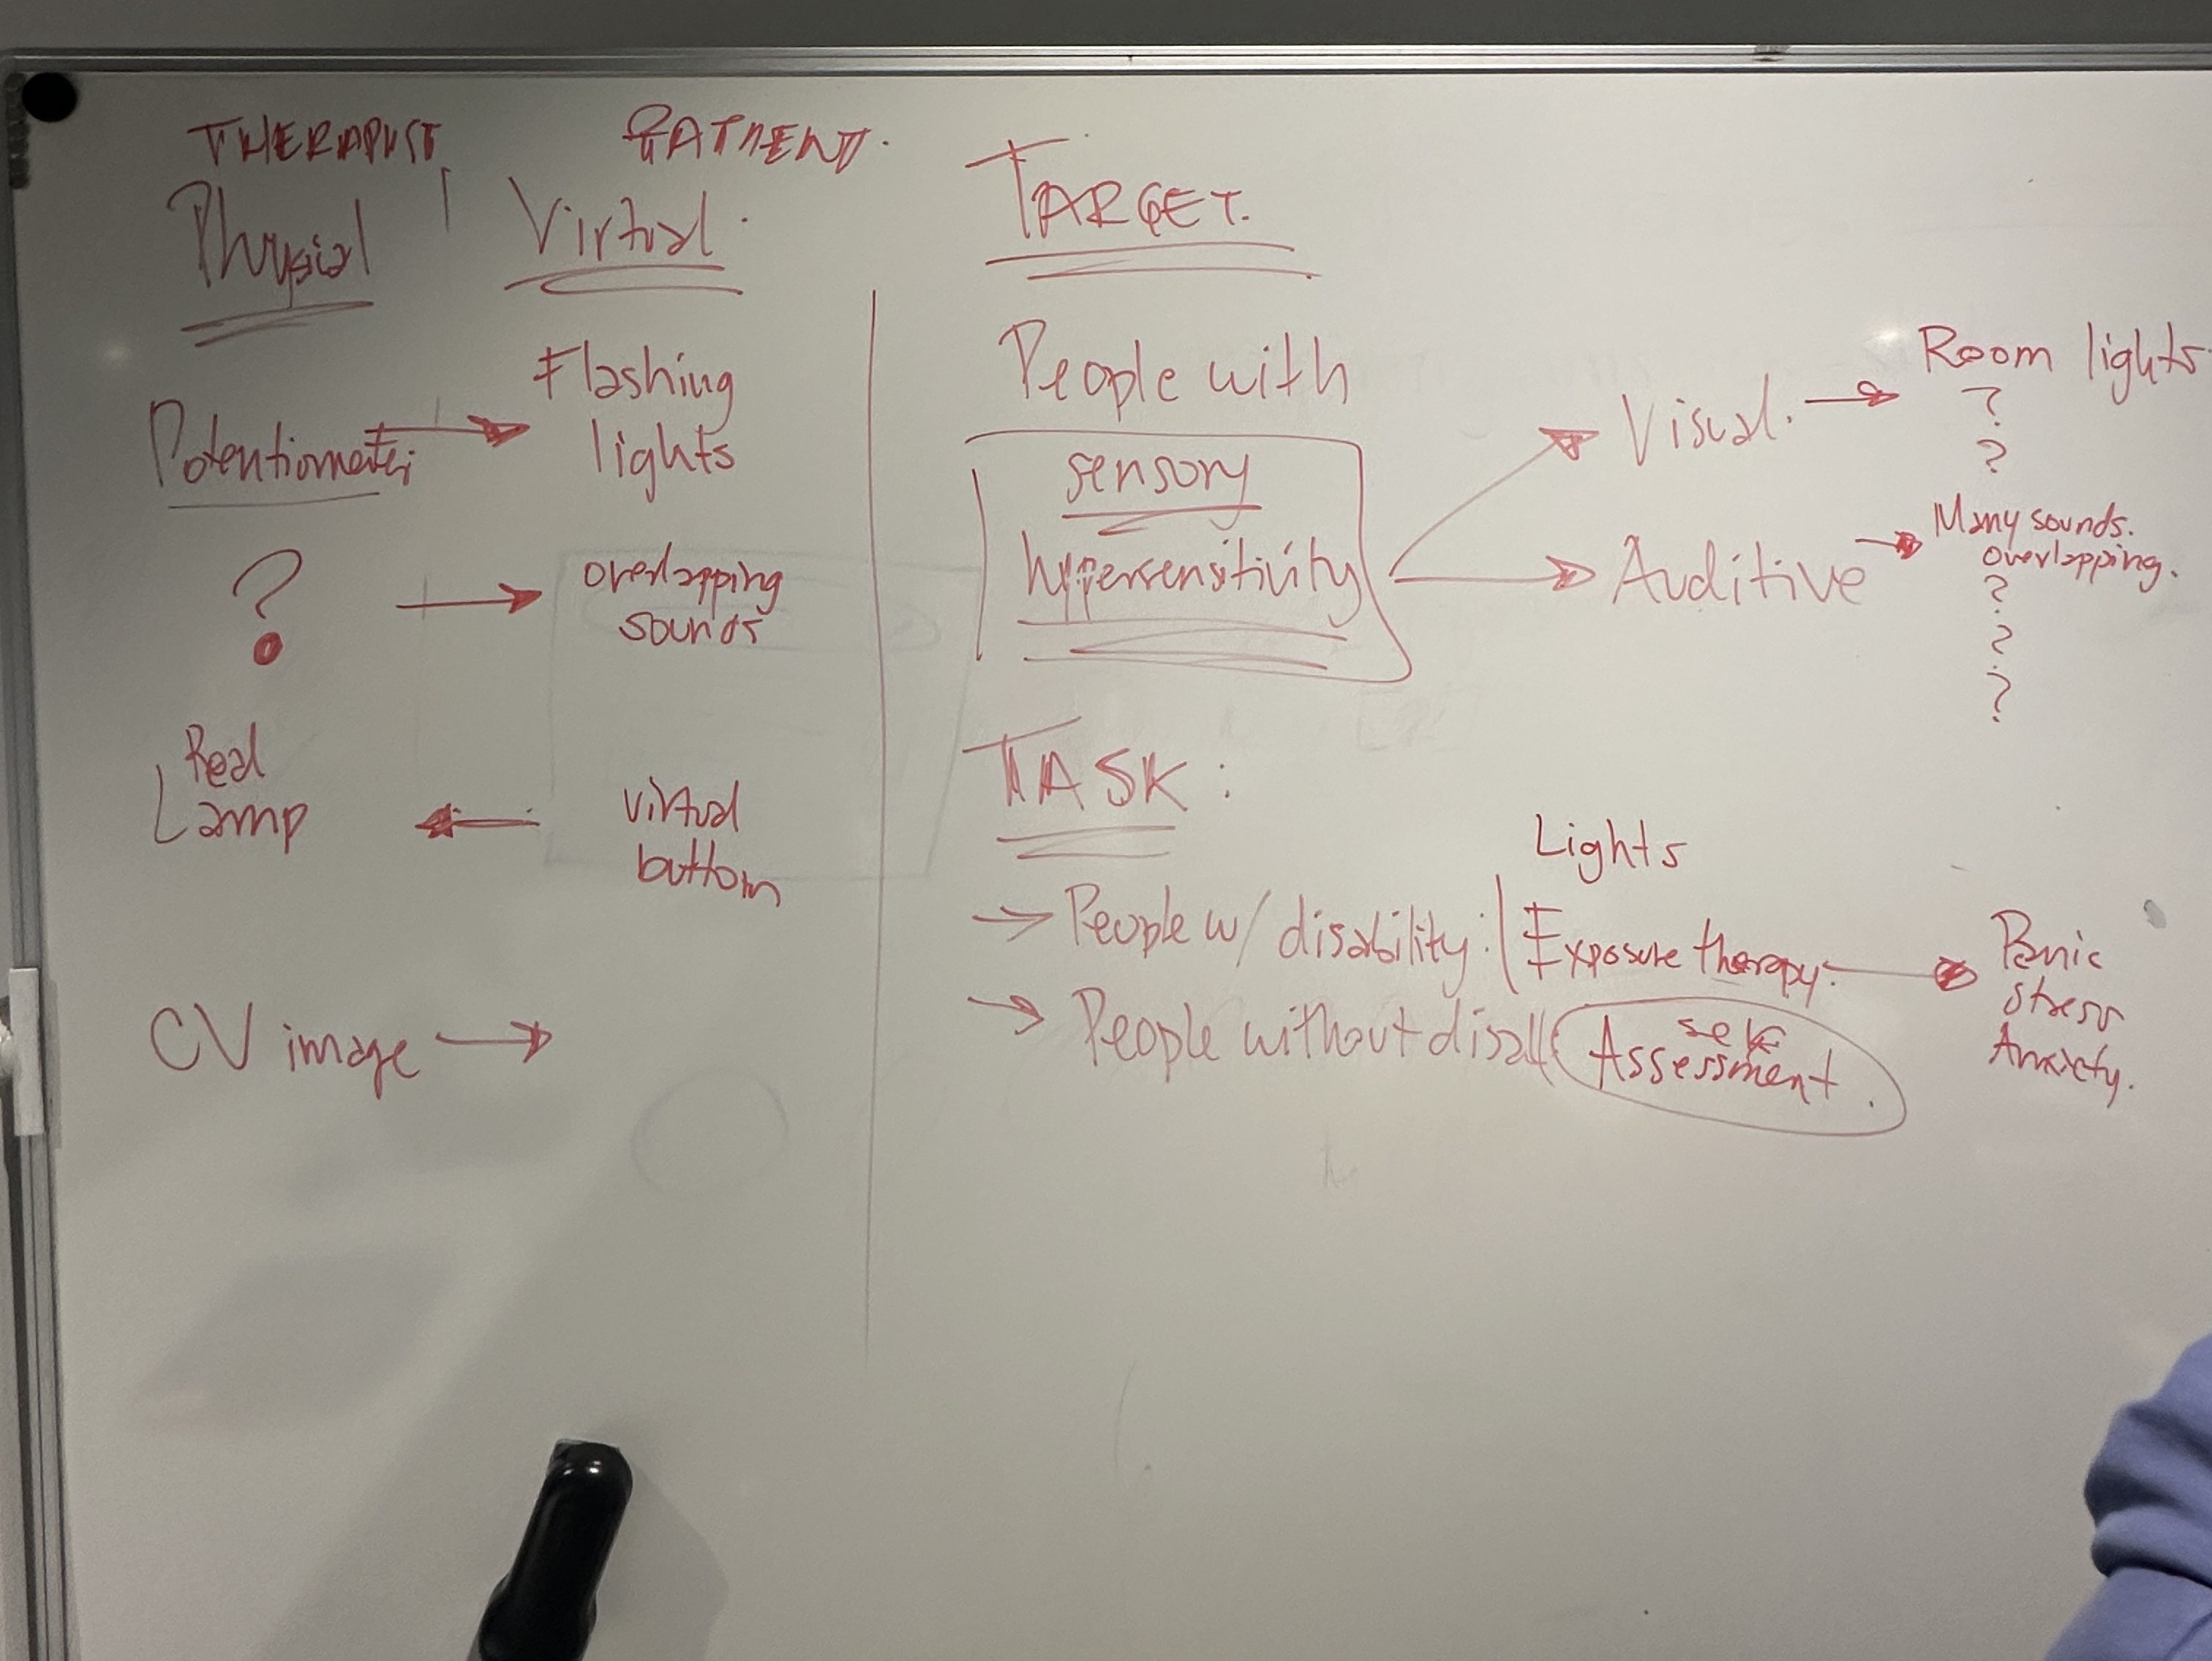 THERAPIST
PATIENT.
Physial
Virtual.
Potentiometer
Flashing
lights
?
overlapping
sounds
Real
Lamp
virtual
button
CV image
TARGET.
People with
sensory
hypersensitivity
Visual.
Room lights
?
?
Auditive
Many sounds.
overlapping.
?
?
?
TASK:
Lights
People w/ disability: Exposure therapy.
Panic
stress
Anxiety.
People without disab
self
Assessment.